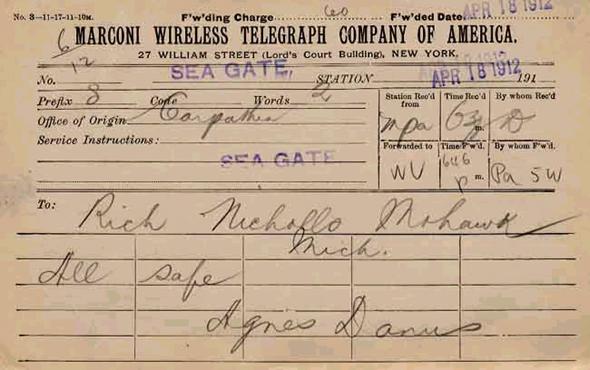 No. 3—11-17-11-10M. F'w'ding Charge 60 F'w'ded Date APR 18 1912
6
12
MARCONI WIRELESS TELEGRAPH COMPANY OF AMERICA.
27 WILLIAM STREET (Lord's Court Building), NEW YORK.
No. SEA GATE, STATION APR 18 1912 191
Prefix S Code Words 2
Office of Origin Carpathia
Service Instructions:
SEA GATE.
Station Rec'd from Time Rec'd By whom Rec'd
mpa m.
Forwarded to Time F'w'd. By whom F'w'd.
WU 646 p m. Pa SW
To: Rich Nicholls Mohawk
Mich.
All safe
Agnes Davis